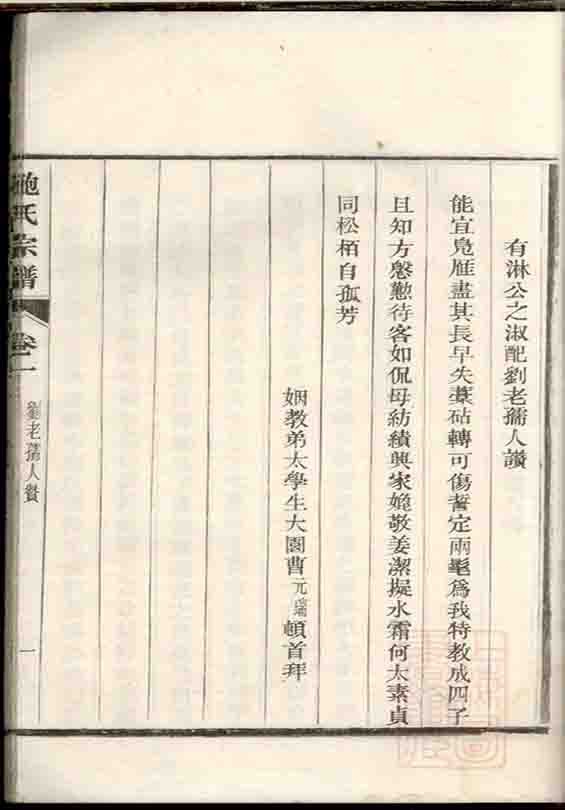 有淋公之淑配劉老孺人讚
能宜鳧雁盡其長早失藁砧轉可傷誓定兩髦為我特教成四子
且知方慇懃待客如侃母紡績興家媿敬姜潔擬水霜何太素貞
同松栢自孤芳
姻教弟太學生大園曹元瑞頓首拜
鮑氏宗譜 卷一 劉老孺人贊 一